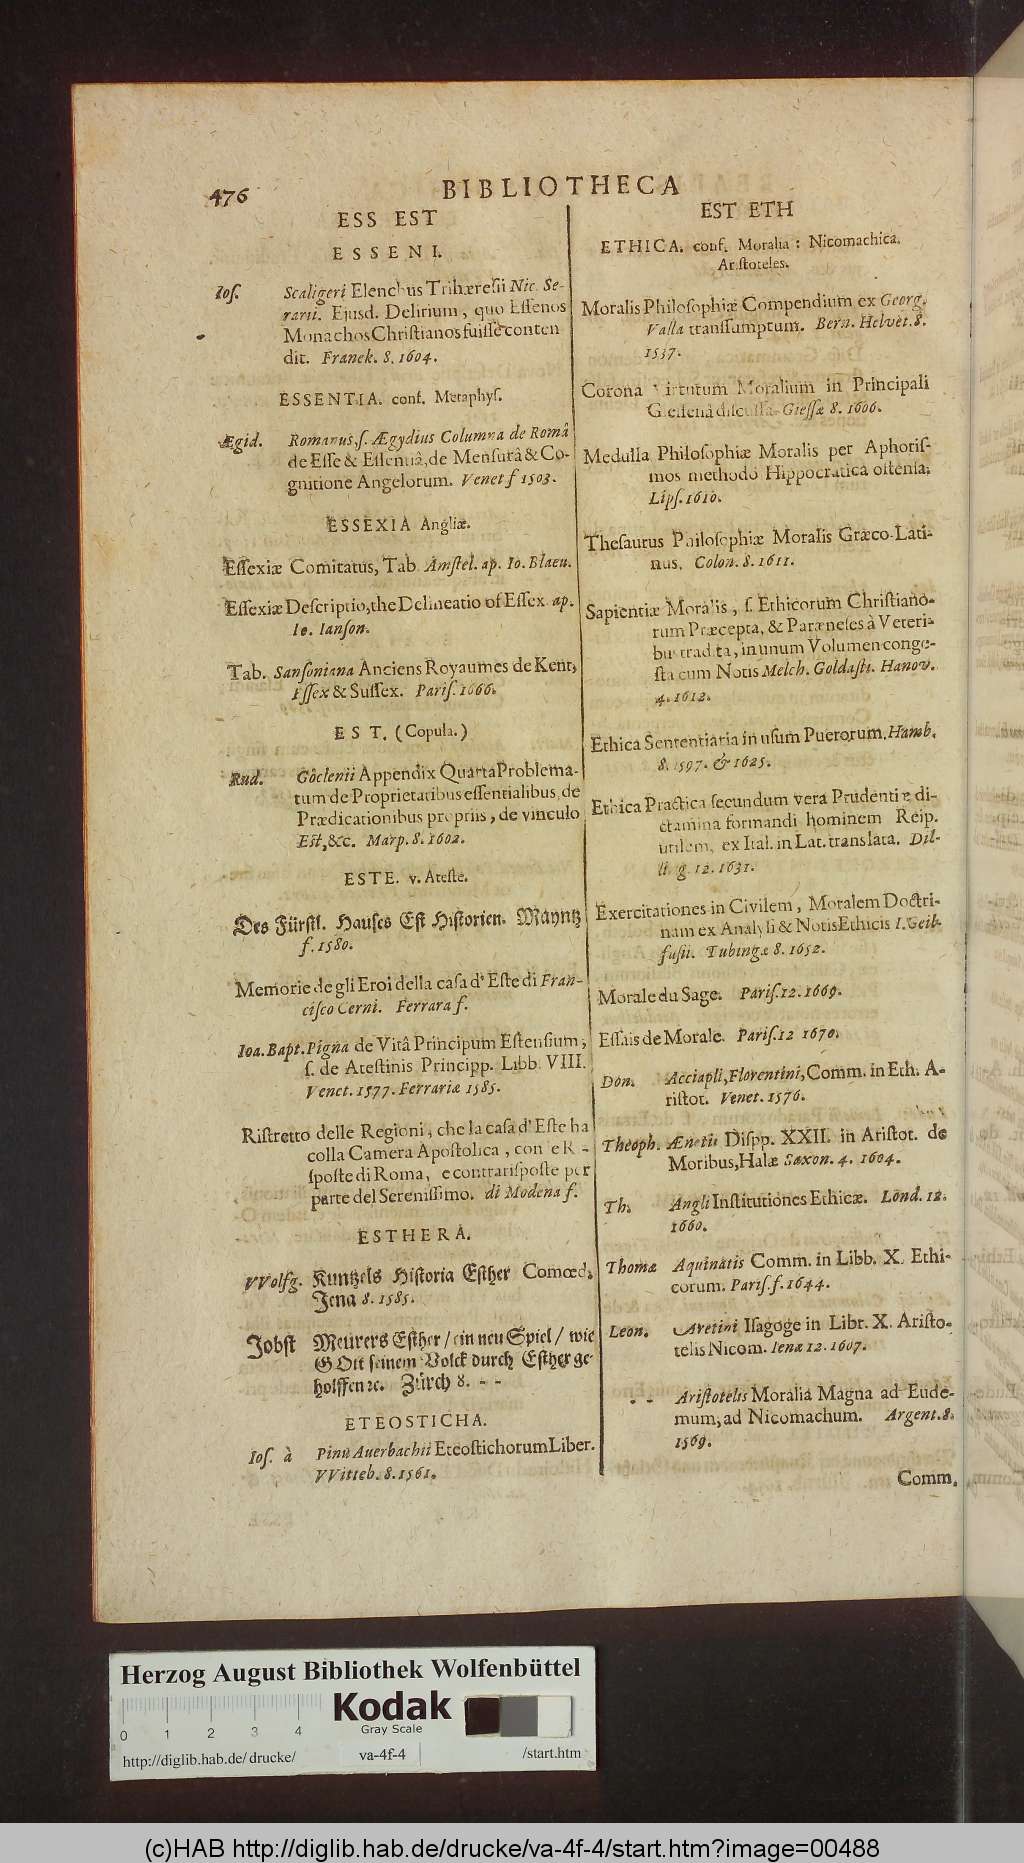 476
BIBLIOTHECA
ESS EST
ESSENI.
Ios. Scaligeri Elenchus Trihæresii Nic. Se-
rarii. Ejusd. Delirium, quo Essenos
Monachos Christianos fuisse conten
dit. Franek. 8. 1604.
ESSENTIA. conf. Metaphys.
Ægid. Romanus, s. Ægydius Columna de Româ
de Esse & Essentiâ, de Mensurâ & Co-
gnitione Angelorum. Venet f 1503.
ESSEXIA Angliæ.
Essexiæ Comitatus, Tab. Amstel. ap. Io. Blaeu.
Essexiæ Descriptio, the Delineatio of Essex. ap.
Io. Ianson.
Tab. Sansoniana Anciens Royaumes de Kent,
Essex & Sussex. Paris. 1666.
EST. (Copula.)
Rud. Goclenii Appendix Quarta Problema-
tum de Proprietatibus essentialibus, de
Prædicationibus propriis, de vinculo
Est, &c. Marp. 8. 1602.
ESTE. v. Ateste.
Des Fürstl. Hauses Est Historien. Mäyntz
f. 1580.
Memorie de gli Eroi della casa d'Este di Fran-
cisco Cerni. Ferrara f.
Ioa. Bapt. Pigna de Vitâ Principum Estensium,
s. de Atestinis Principp. Libb. VIII.
Venet. 1577. Ferrariæ 1585.
Ristretto delle Regioni, che la casa d'Este ha
colla Camera Apostolica, con le Ri-
sposte di Roma, e contrarisposte per
parte del Serenissimo. di Modena f.
ESTHERA.
VVolfg. Kuntzels Historia Esther Comœd.
Jena 8. 1585.
Jobst Meurers Esther / ein neu Spiel / wie
GOtt seinem Volck durch Esther ge-
holffen ꝛc. Zürch 8. - -
ETEOSTICHA.
Ios. à Pinu Auerbachii Eteostichorum Liber.
VVitteb. 8. 1561.
EST ETH
ETHICA. conf. Moralia: Nicomachica.
Aristoteles.
Moralis Philosophiæ Compendium ex Georg.
Valla transsumptum. Bern. Helvet. 8.
1537.
Corona Virtutum Moralium in Principali
Giessenâ discussa. Giessæ 8. 1606.
Medulla Philosophiæ Moralis per Aphoris-
mos methodo Hippocratica ostensa.
Lips. 1610.
Thesaurus Philosophiæ Moralis Græco-Lati-
nus. Colon. 8. 1611.
Sapientiæ Moralis, s. Ethicorum Christiano-
rum Præcepta, & Paræneses à Veteri-
bus tradita, in unum Volumen conge-
sta cum Notis Melch. Goldasti. Hanov.
4. 1612.
Ethica Sententiaria in usum Puerorum. Hamb.
8. 1597. & 1625.
Ethica Practica secundum vera Prudentiæ di-
ctamina formandi hominem Reip.
utilem, ex Ital. in Lat. translata. Dil-
ling. 12. 1631.
Exercitationes in Civilem, Moralem Doctri-
nam ex Analysi & Notis Ethicis I. Geib-
fusii. Tubingæ 8. 1652.
Morale du Sage. Paris. 12. 1669.
Essais de Morale. Paris. 12 1670.
Don. Acciapli, Florentini, Comm. in Eth. A-
ristot. Venet. 1576.
Theoph. Ænetii Dispp. XXII. in Aristot. de
Moribus, Halæ Saxon. 4. 1604.
Th. Angli Institutiones Ethicæ. Lond. 12.
1660.
Thomæ Aquinatis Comm. in Libb. X. Ethi-
corum. Paris. f. 1644.
Leon. Aretini Isagoge in Libr. X. Aristo-
telis Nicom. Ienæ 12. 1607.
- - Aristotelis Moralia Magna ad Eude-
mum, ad Nicomachum. Argent. 8.
1569.
Comm.
Herzog August Bibliothek Wolfenbüttel
Kodak
Gray Scale
0 1 2 3 4
http://diglib.hab.de/drucke/ va-4f-4 /start.htm
(c)HAB http://diglib.hab.de/drucke/va-4f-4/start.htm?image=00488